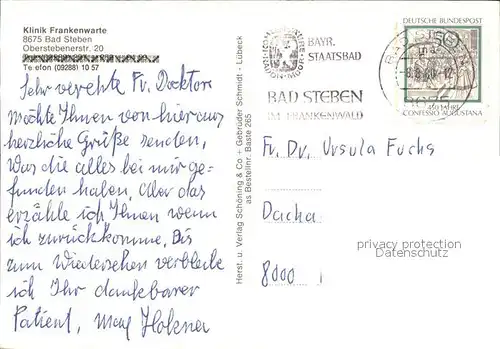 Klinik Frankenwarte
8675 Bad Steben
Oberstebenerstr. 20
Te efon (09288) 10 57
Sehr verehrte Fr. Doktor
möchte Ihnen von hier aus
herzliche Grüße senden,
Was die alles bei mir ge-
funden haben, Aber das
erzähle ich Ihnen wenn
ich zurückkomme, Bis
zum Wiedersehen verbleibe
ich Ihr dankbarer
Patient, Max
Herst. u. Verlag Schöning & Co + Gebrüder Schmidt - Lübeck
as Bestellnr. Baste 265
RADON-MOOR
BAYR.
STAATSBAD
BAD STEBEN
IM FRANKENWALD
DEUTSCHE BUNDESPOST
50
BAD STEBEN
-12
450 JAHRE
CONFESSIO AUGUSTANA
Fr. Dr. Ursula Fuchs
Dacha
privacy protection
Datenschutz
8000 1